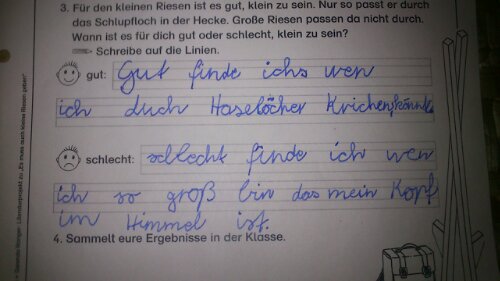 3. Für den kleinen Riesen ist es gut, klein zu sein. Nur so passt er durch
das Schlupfloch in der Hecke. Große Riesen passen da nicht durch.
Wann ist es für dich gut oder schlecht, klein zu sein?
Schreibe auf die Linien.
gut: Gut finde ichs wen
ich duch Haselöcher Krichen könnte
schlecht: schlecht finde ich wen
ich so groß bin das mein Kopf
im Himmel ist.
4. Sammelt eure Ergebnisse in der Klasse.
Literaturprojekt zu „Es muss auch kleine Riesen geben“